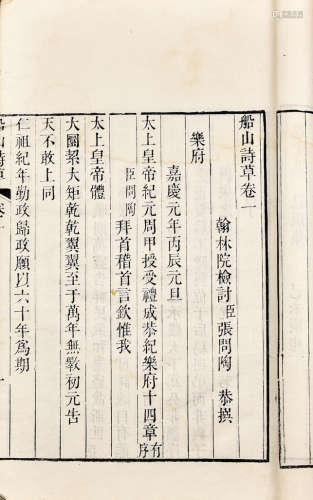 船山詩草卷一
翰林院檢討臣張問陶恭撰
樂府
嘉慶元年丙辰元旦
太上皇帝紀元周甲授受禮成恭紀樂府十四章有序
臣問陶拜首稽首言欽惟我
太上皇帝體
大圜絜大矩乾乾翼翼至于萬年無斁初元告
天不敢上同
仁祖紀年勤政歸政願以六十年為期
船山詩草
卷一
一